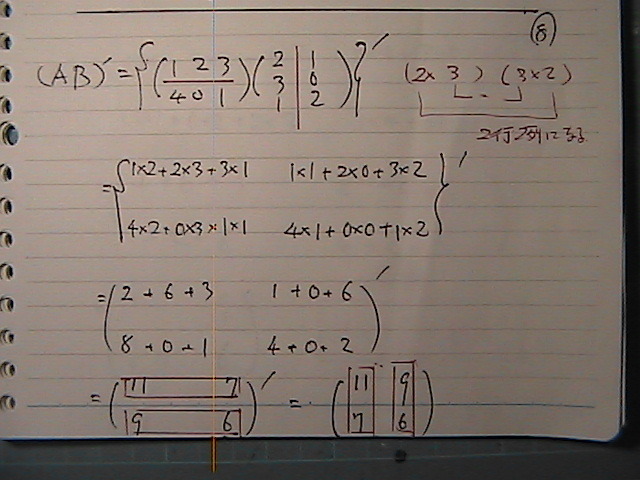 ⑧
(AB)′ = {(1 2 3 / 4 0 1)(2 1 / 3 0 / 1 2)}′ (2×3)(3×2)
2行2列になる
= {1×2+2×3+3×1 1×1+2×0+3×2
4×2+0×3×1×1 4×1+0×0+1×2}′
= (2+6+3 1+0+6
8+0+1 4+0+2)′
= (11 7 / 9 6)′ = (11 9 / 7 6)